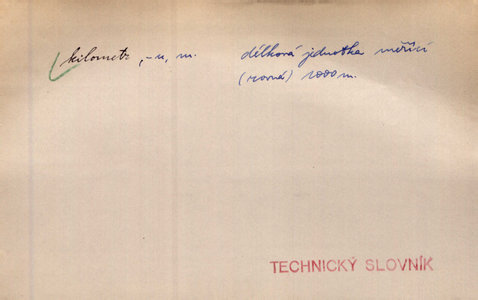 kilometr, -u, m. délková jednotka měřící
(rovná) 1000 m.
TECHNICKÝ SLOVNÍK